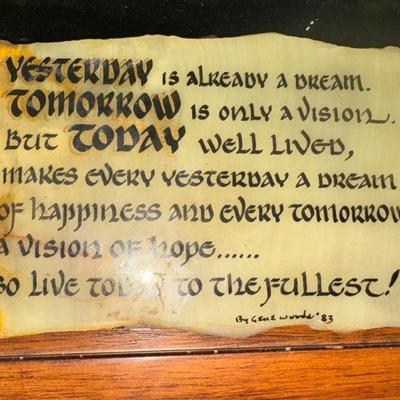 YESTERDAY is already a dream.
TOMORROW is only a vision.
But TODAY well lived,
makes every yesterday a dream
of happiness and every tomorrow
a vision of hope......
so live today to the fullest!
By Gene Woods '83